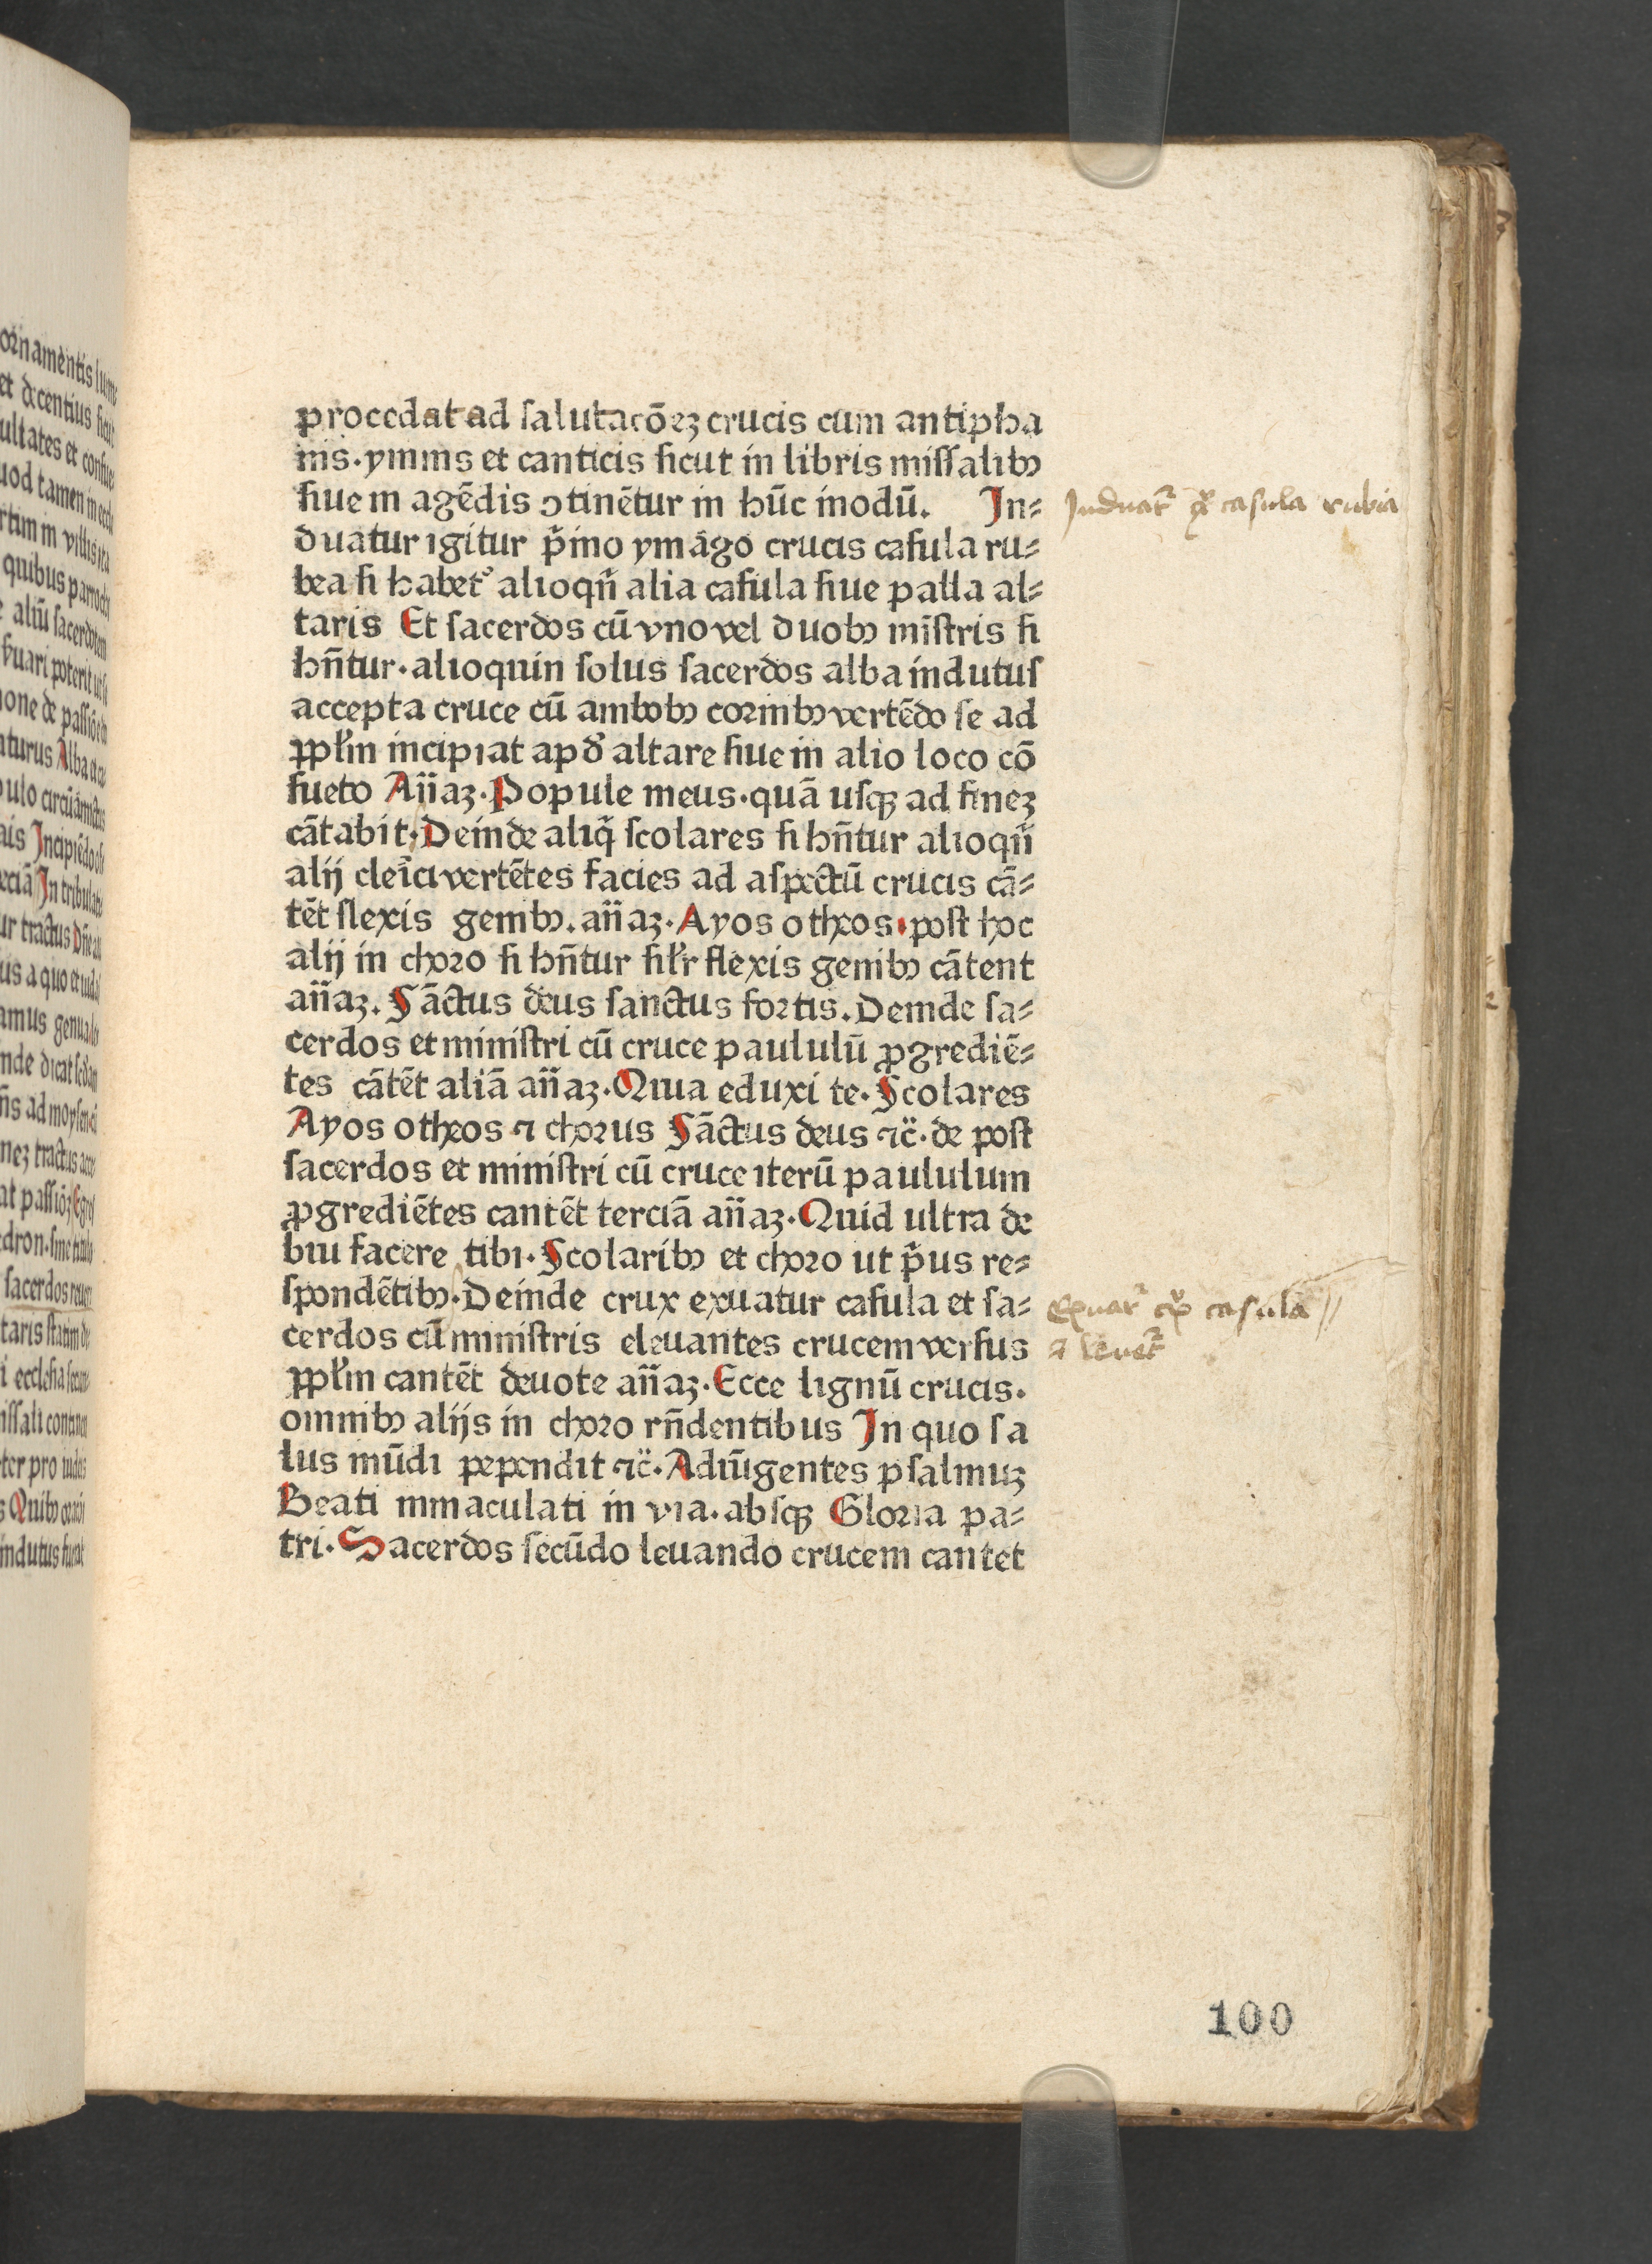 procedat ad ſalutacōeꝫ crucis cum antipha
nis·ymnis et canticis ſicut in libris miſſalibꝰ
ſiue in agēdis ꝯtinētur in hūc modū. In⸗
duatur igitur p̄mo ymago crucis caſula ru⸗
bea ſi habet᷑ alioqn̄ alia caſula ſiue palla al⸗
taris Et ſacerdos cū vno vel duobꝰ miſtris ſi
hn̄tur·alioquin ſolus ſacerdos alba indutuſ
accepta cruce cū ambobꝰ cornibꝰ vertēdo ſe ad
ppl̄m incipiat apd̕ altare ſiue in alio loco cō
ſueto An̄aꝫ·Popule meus·quā uſqꝫ ad fineꝫ
cātabit·Deinde aliq̄ ſcolares ſi hn̄tur alioqn̄
alij cleīci vertētes facies ad aſpectū crucis cā⸗
tēt flexis genibꝰ.an̄aꝫ·Ayos otheos·poſt hoc
alij in choro ſi hn̄tur ſil̄r flexis genibꝰ cātent
an̄aꝫ.Sāctus deus ſanctus fortis.Deinde ſa⸗
cerdos et miniſtri cū cruce paululū ꝓgrediē⸗
tes cātēt aliā an̄aꝫ·Quia eduxi te·Scolares
Ayos otheos ⁊ chorus Sāctus deus ⁊c̄·de poſt
ſacerdos et miniſtri cū cruce iterū paululum
ꝓgrediētes cantēt terciā an̄aꝫ·Quid ultra de
bui facere tibi·Scolaribꝰ et choro ut p̄us re⸗
ſpondētibꝰ·Deinde crux exuatur caſula et ſa⸗
cerdos cū miniſtris eleuantes crucem verſus
ppl̄m cantēt deuote an̄aꝫ·Ecce lignū crucis.
omnibꝰ alijs in choro rn̄dentibus In quo ſa
lus mūdi pependit ⁊c̄·Adiūgentes pſalmuꝫ
Beati inmaculati in via·abſqꝫ Gloria pa⸗
tri·Sacerdos ſecūdo leuando crucem cantet
Induat᷑ casula rubia
Exuat᷑ casula //
⁊ leuet᷑
100